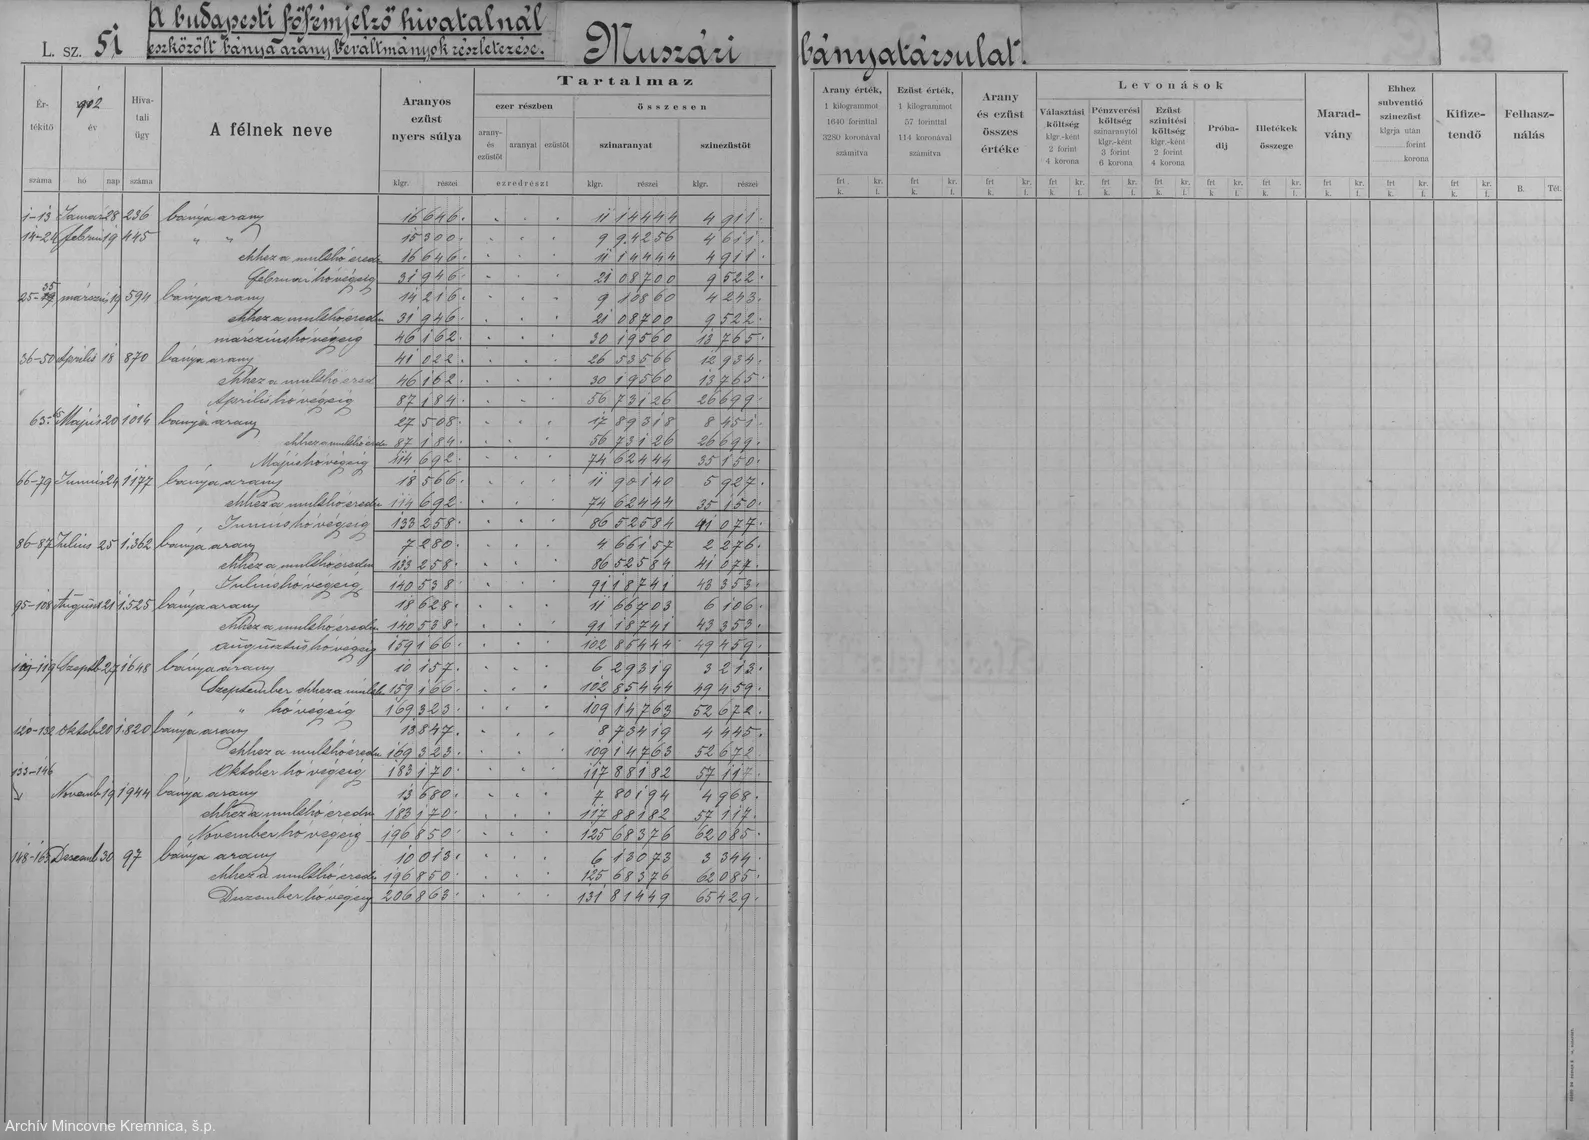 L. sz. 51 A budapesti főfémjelző hivatalnál
eszközölt bánya arany beváltmányok részletezése. Muszári bányatársulat.
Értékítő száma
902 év hó nap
Hivatali ügy száma
A félnek neve
Aranyos ezüst nyers súlya klgr. részei
Tartalmaz
ezer részben összesen
arany- és ezüstöt aranyat ezüstöt ezredrészt
színaranyat klgr. részei
színezüstöt klgr. részei
Arany érték, 1 kilogrammot 1640 forinttal 3280 koronával számítva
Ezüst érték, 1 kilogrammot 57 forinttal 114 koronával számítva
Arany és ezüst összes értéke
Levonások
Választási költség klgr.-ként 2 forint 4 korona
Pénzverési költség színaranytól klgr.-ként 3 forint 6 korona
Ezüst színítési költség klgr.-ként 2 forint 4 korona
Próbadíj
Illetékek összege
Maradvány
Ehhez subventió színezüst klgrja után forint korona
Kifizetendő
Felhasználás
frt kr. k. f.
B. Tét.
1-13 Január 28 236 bánya arany 16 646 11 14444 4 911
14-24 február 19 445 " " 15 300 9 94256 4 611
ehhez a multhó ered. 16 646 11 14444 4 911
február hó végéig 31 946 21 08700 9 522
25-35 március 19 594 bánya arany 14 216 9 10860 4 243
ehhez a multhó eredm 31 946 21 08700 9 522
március hó végéig 46 162 30 19560 13 765
36-50 Április 18 870 bánya arany 41 022 26 53566 12 934
ehhez a multhó ered 46 162 30 19560 13 765
Április hó végéig 87 184 56 73126 26 699
Május 20 1014 bánya arany 27 508 17 89318 8 451
ehhez a multhó eredm 87 184 56 73126 26 699
Május hó végéig 114 692 74 62444 35 150
66-79 Junius 24 1177 bánya arany 18 566 11 90140 5 927
ehhez a multhó eredm 114 692 74 62444 35 150
Junius hó végéig 133 258 86 52584 41 077
86-87 Julius 25 1.362 bánya arany 7 280 4 66157 2 276
ehhez a multhó eredm 133 258 86 52584 41 077
Julius hó végéig 140 538 91 18741 43 353
95-108 August 21 1.525 bánya arany 18 628 11 66703 6 106
ehhez a multhó eredm 140 538 91 18741 43 353
augusztus hó végéig 159 166 102 85444 49 459
109-119 Szeptb 27 1648 bánya arany 10 157 6 29319 3 213
Szeptember ehhez a multh 159 166 102 85444 49 459
" hó végéig 169 323 109 14763 52 672
120-132 Oktob 20 1.820 bánya arany 13 847 8 73419 4 445
ehhez a multhó eredm 169 323 109 14763 52 672
Oktober hó végéig 183 170 117 88182 57 117
133-146 Novemb 19 1944 bánya arany 13 680 7 80194 4 968
ehhez a multhó eredm 183 170 117 88182 57 117
November hó végéig 196 850 125 68376 62 085
148-163 Dezemb 30 97 bánya arany 10 013 6 13073 3 344
ehhez a multhó eredm 196 850 125 68376 62 085
Dezember hó végéig 206 863 131 81449 65 429
Archív Mincovne Kremnica, š.p.